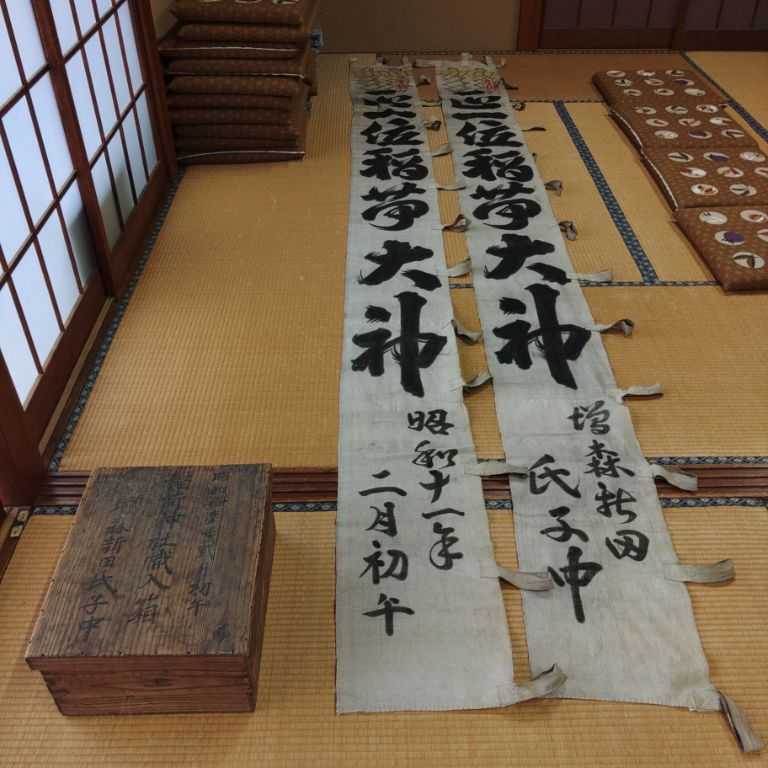 正一位稲荷大神
増森新田
氏子中
正一位稲荷大神
昭和十一年
二月初午
月初午
神社幟入箱
森新田氏子中